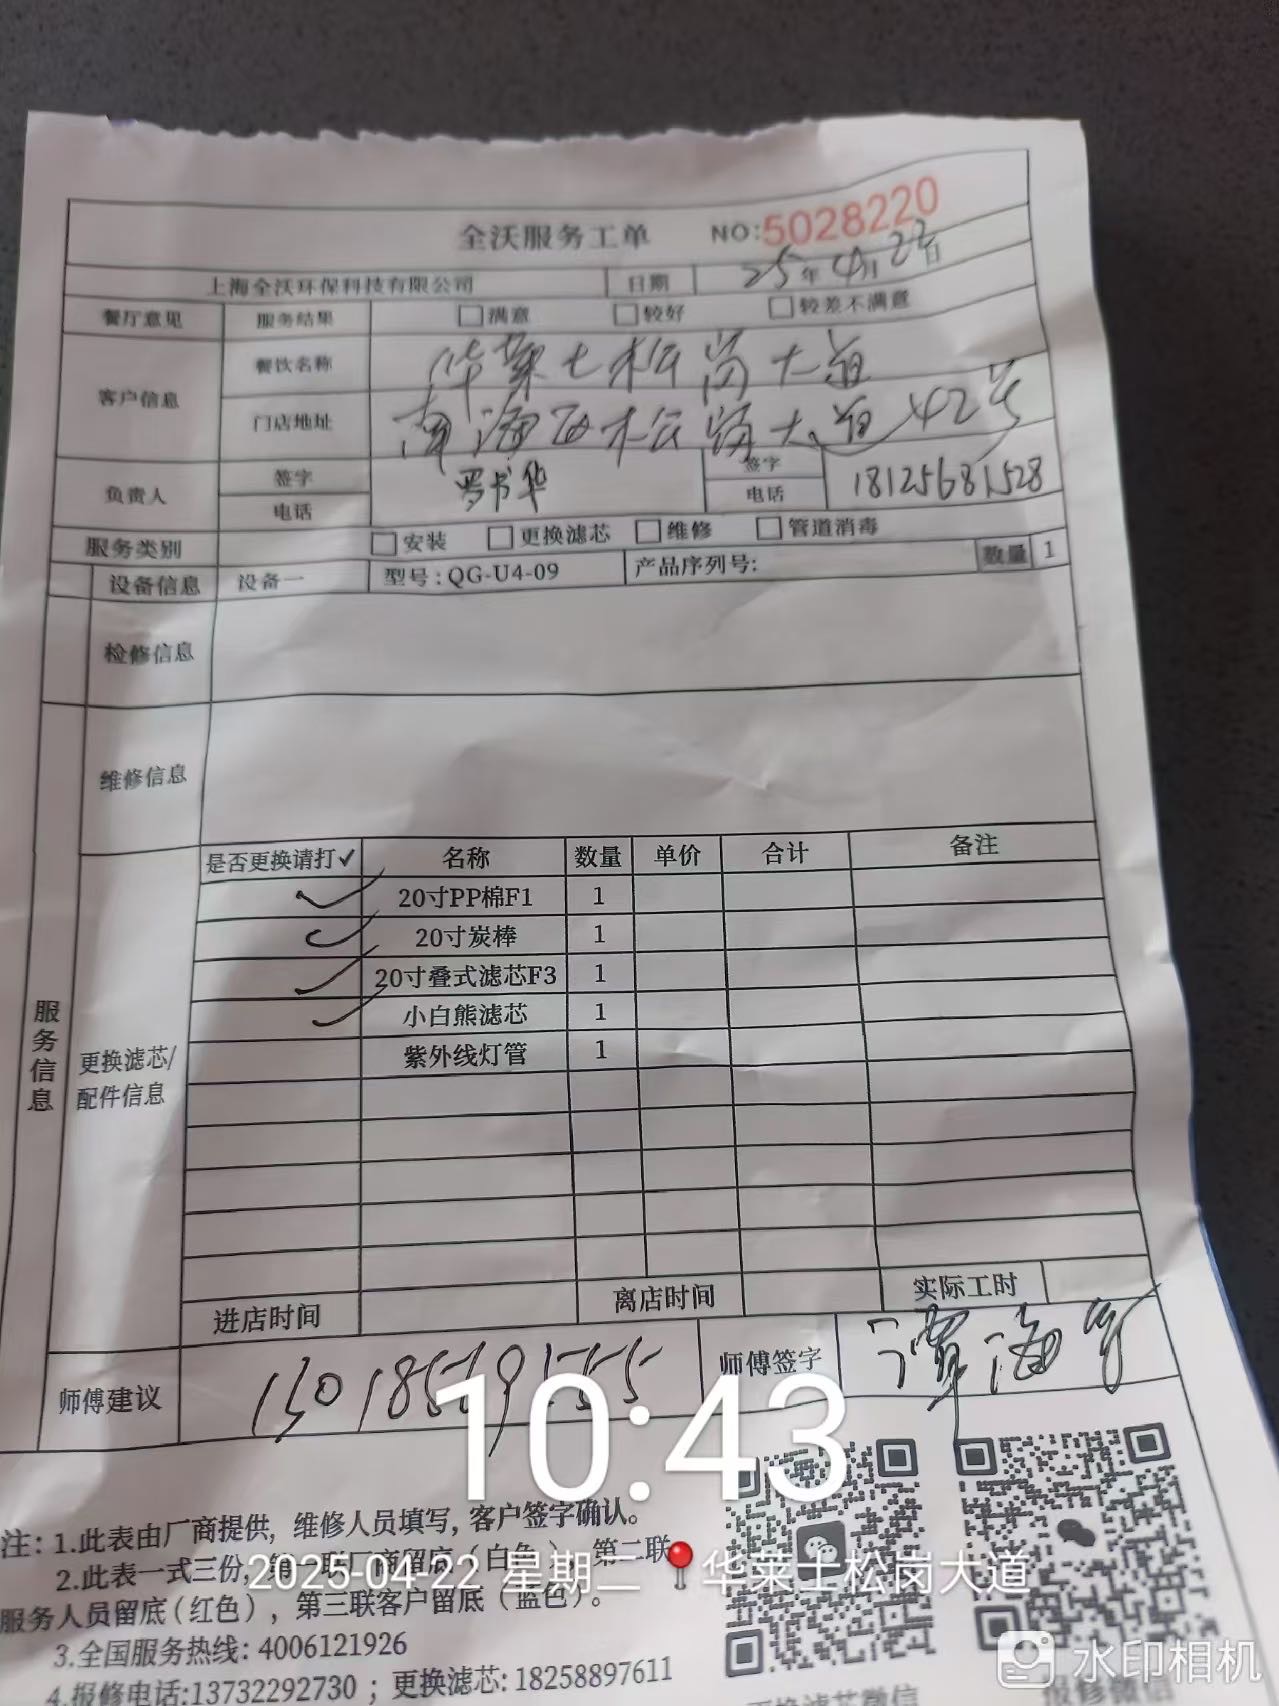 全沃服务工单 NO:5028220
上海全沃环保科技有限公司 日期 25年4月22日
餐厅意见 服务结果 □满意 □较好 □较差不满意
客户信息 餐饮名称 华莱士松岗大道
门店地址 南海区松岗大道42号
负责人 签字 罗书华 签字
电话 电话 18125681528
服务类别 □安装 □更换滤芯 □维修 □管道消毒
设备信息 设备一 型号:QG-U4-09 产品序列号: 数量 1
检修信息
维修信息
服务信息
更换滤芯/配件信息
是否更换请打✓ 名称 数量 单价 合计 备注
✓ 20寸PP棉F1 1
✓ 20寸炭棒 1
✓ 20寸叠式滤芯F3 1
✓ 小白熊滤芯 1
紫外线灯管 1
进店时间 离店时间 实际工时
师傅建议 师傅签字 谭海
10:43
注: 1.此表由厂商提供, 维修人员填写, 客户签字确认。
2.此表一式三份, 第一联厂商留底(白色), 第二联
服务人员留底(红色), 第三联客户留底(蓝色)。
2025-04-22 星期二 华莱士松岗大道
3.全国服务热线: 4006121926
4.报修电话:13732292730 ; 更换滤芯: 18258897611
水印相机
更换滤芯微信